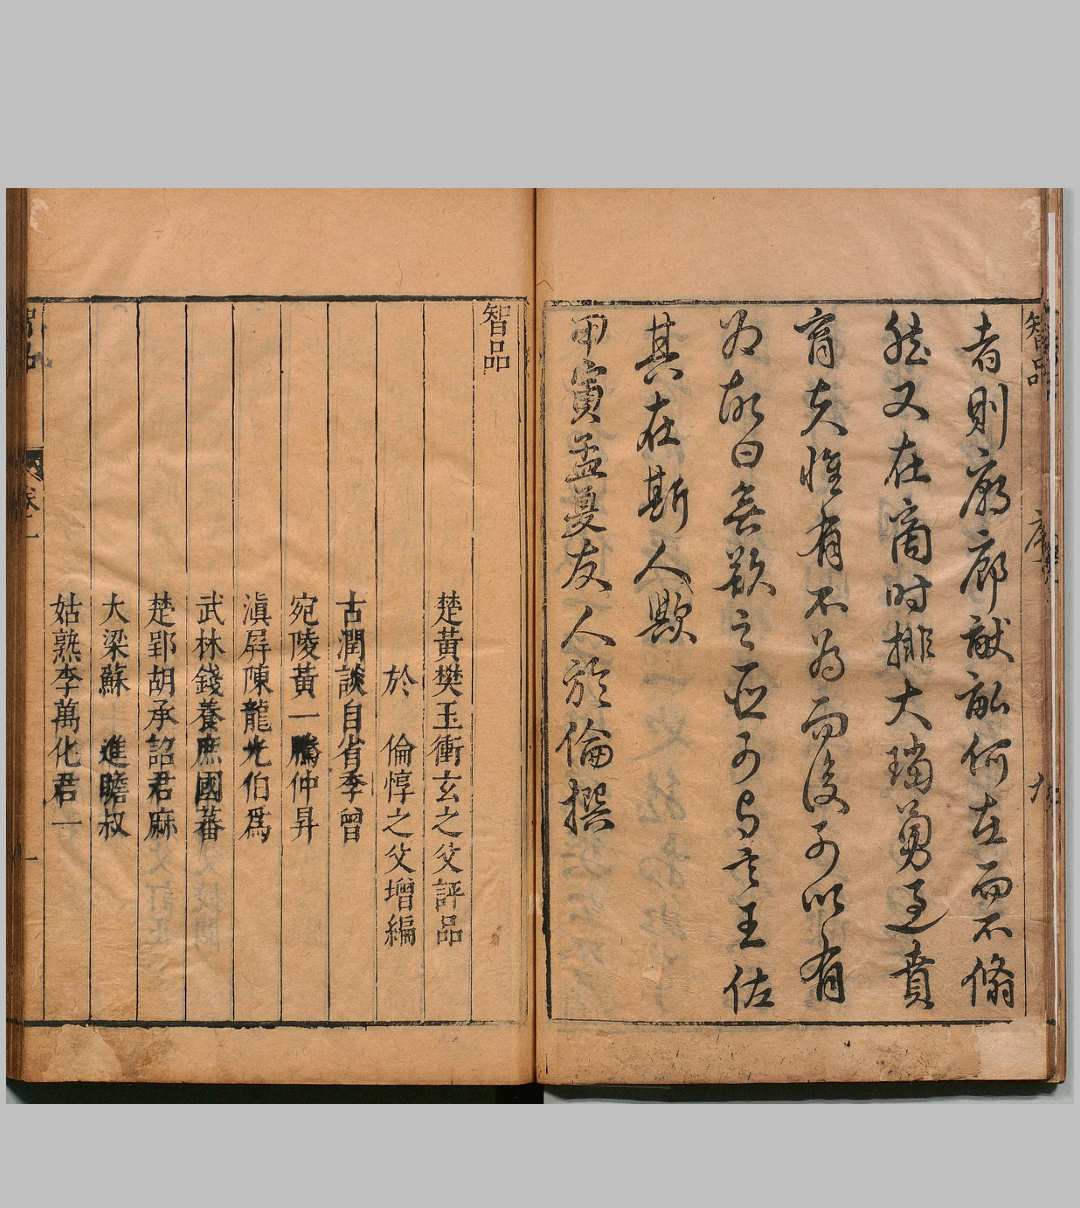 智品
序
九
者則廊廟猷畝何在而不脩
然又在商时排大璫勇過賁
育夫惟有不為而後可以有
為故曰無欲之臣可与言王佐
其在斯人歟
甲寅孟夏友人於倫撰
智品
楚黃樊玉衝玄之父評品
於 倫惇之父增編
古潤談自省季曾
宛陵黃一騰仲昇
滇屏陳龍光伯爲
武林錢養庶國蕃
楚郢胡承詔君麻
大梁蘇 進瞻叔
姑熟李萬化君一
智品
卷一
一